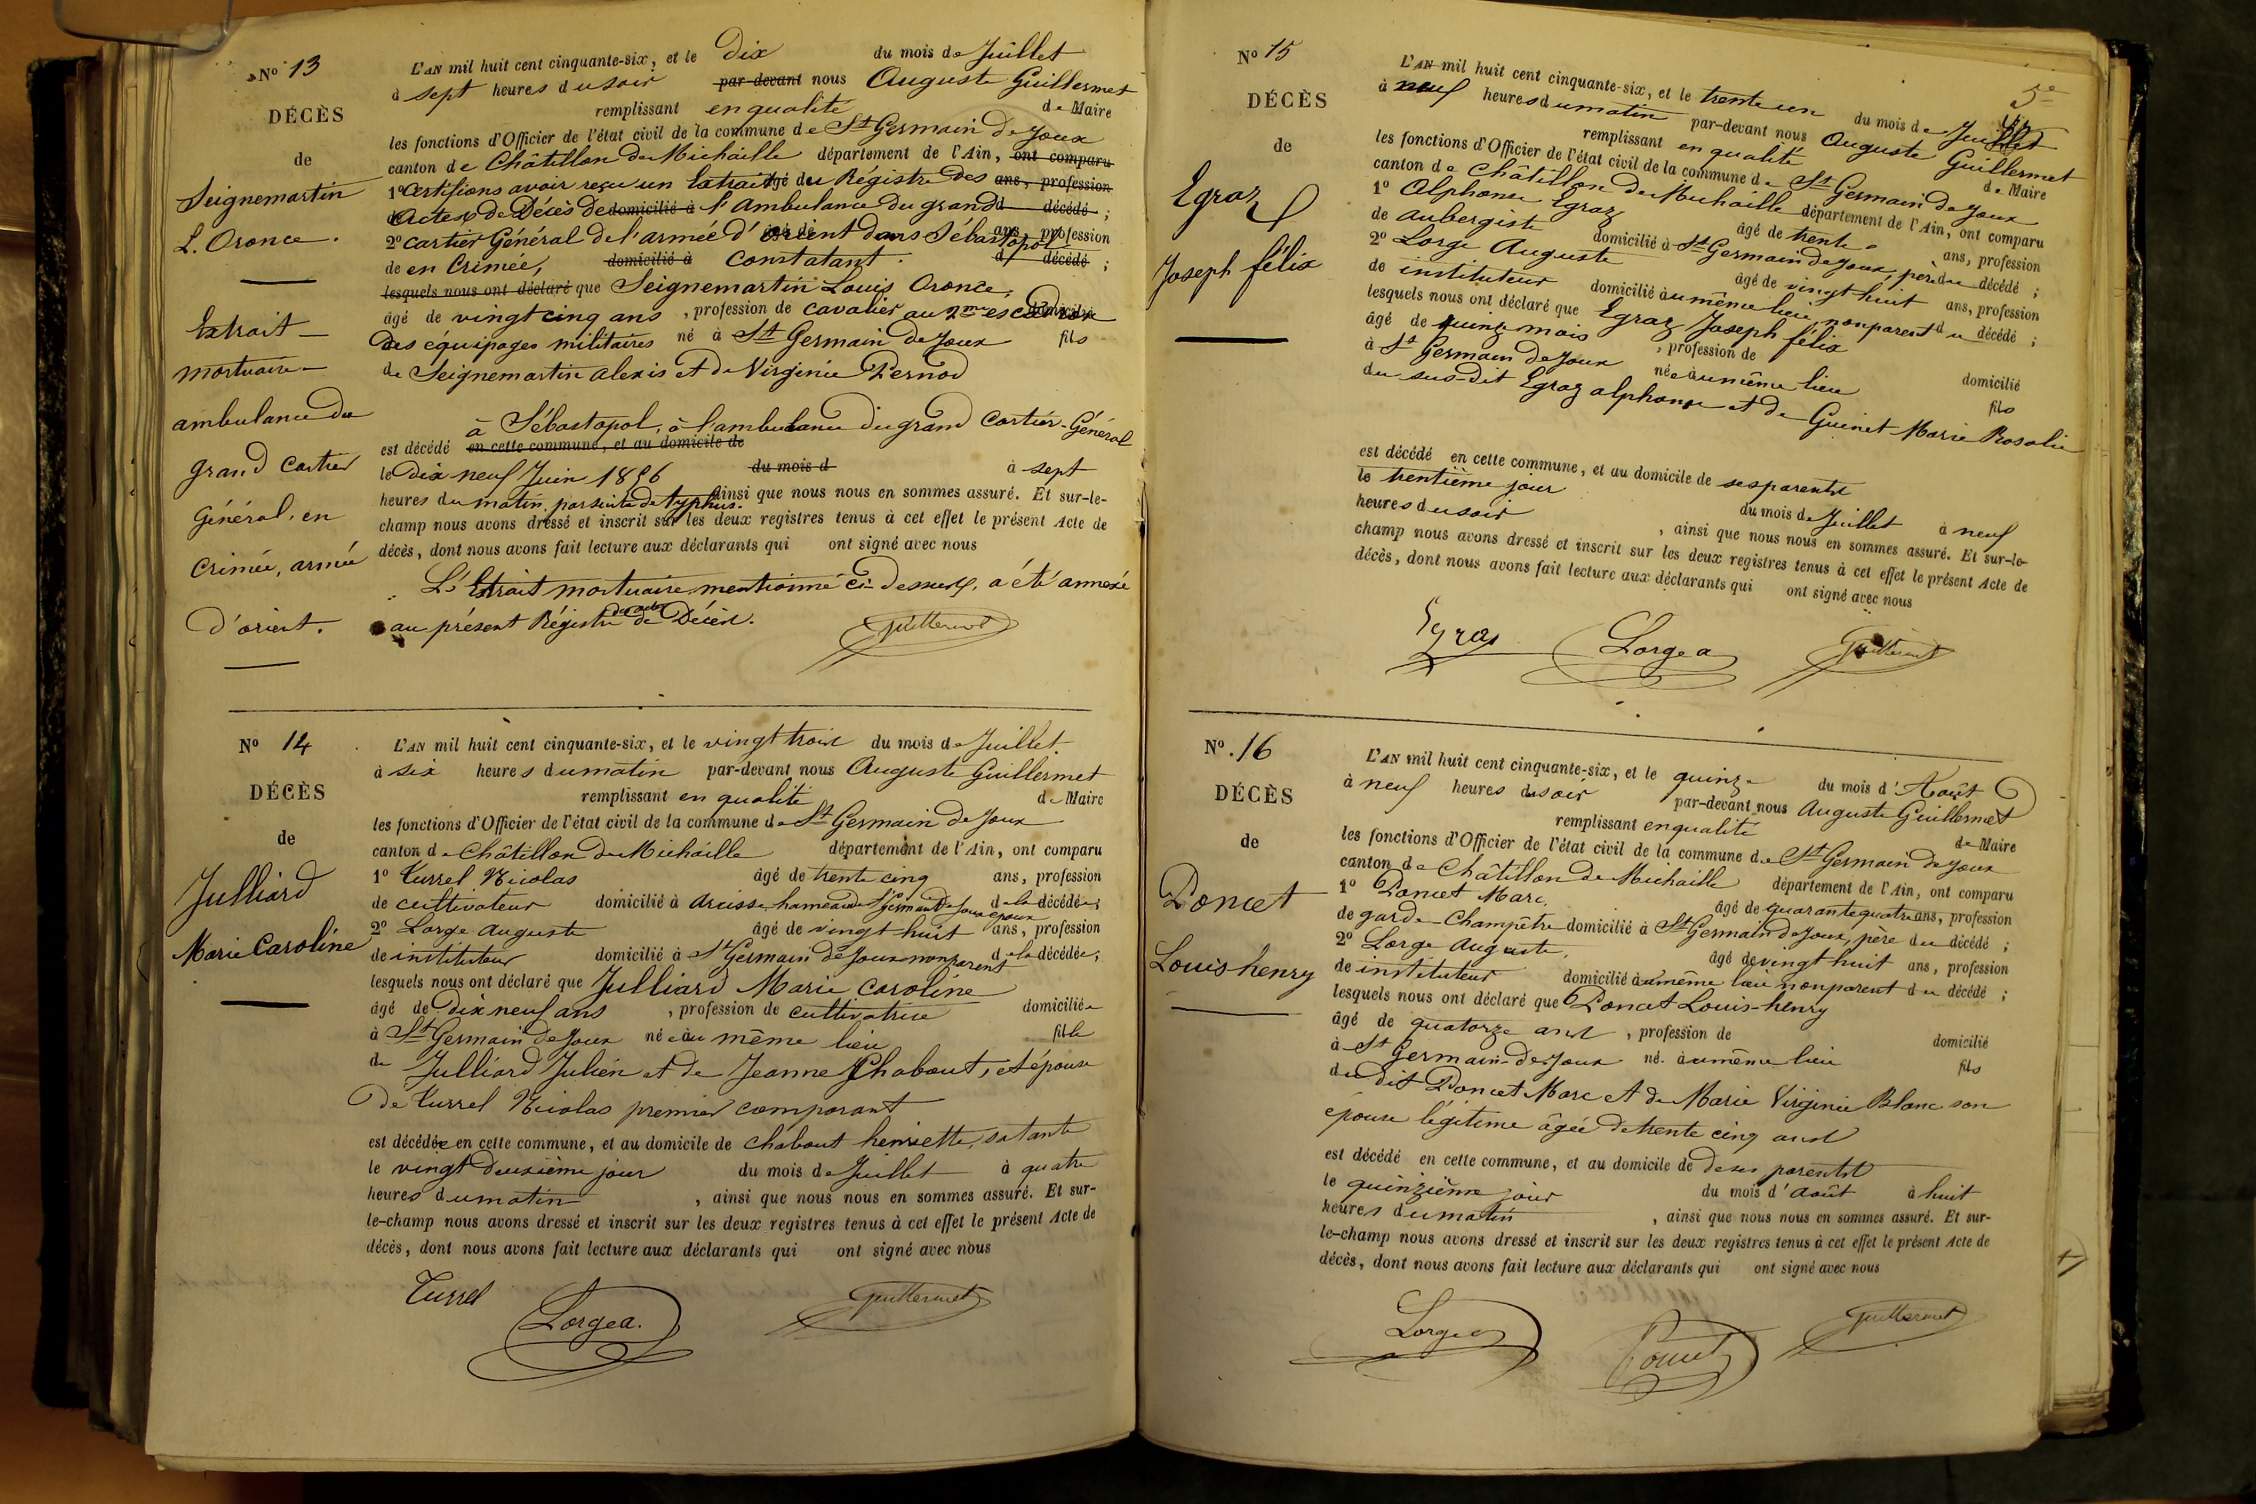 No 13
DÉCÈS
de
Seignemartin
L. Oronce.
Extrait
mortuaire
ambulance du
grand cartier
général, en
crimée, armée
d'orient.
L'AN mil huit cent cinquante-six, et le dix du mois de Juillet
à sept heures du soir par-devant nous Auguste Guillermet
remplissant en qualité de Maire
les fonctions d'Officier de l'état civil de la commune de St Germain de Joux
canton de Châtillon de Michaille département de l'Ain, ont comparu
1o Certifions avoir reçu un Extrait âgé du Régistre des ans, profession
Actes de Décès de domicilié à l'ambulance du grand décédé ;
2o cartier Général de l'armée d'orient dans Sébastopol ans, profession
de en Crimée, domicilié à constatant. d décédé ;
lesquels nous ont déclaré que Seignemartin Louis Oronce,
âgé de vingt cinq ans, profession de cavalier au 2me escadron domicilié
des équipages militaires né à St Germain de Joux fils
de Seignemartin alexis et de Virginie Pernod
à Sébastopol, à l'ambulance du grand Cartier-Général
est décédé en cette commune, et au domicile de
le Dix neuf Juin 1856 du mois d à sept
heures du matin, par suite de typhus. ainsi que nous nous en sommes assuré. Et sur-le-
champ nous avons dressé et inscrit sur les deux registres tenus à cet effet le présent Acte de
décès, dont nous avons fait lecture aux déclarants qui ont signé avec nous
L'Extrait mortuaire mentionné ci-dessus, a été annexé
au présent Régistre de Décès.
Guillermet
No 14
DÉCÈS
de
Julliard
Marie Caroline
L'AN mil huit cent cinquante-six, et le vingt trois du mois de Juillet
à six heures du matin par-devant nous Auguste Guillermet
remplissant en qualité de Maire
les fonctions d'Officier de l'état civil de la commune de St Germain de Joux
canton de Châtillon de Michaille département de l'Ain, ont comparu
1o Turrel Nicolas âgé de trente cinq ans, profession
de cultivateur domicilié à hameau de St Germain de Joux époux de la décédée ;
2o Lorge auguste âgé de vingt huit ans, profession
de instituteur domicilié à St Germain de Joux non parent de la décédée ;
lesquels nous ont déclaré que Julliard Marie Caroline
âgé de dix neuf ans, profession de cultivatrice domiciliée
à St Germain de Joux née au même lieu fille
de Julliard Julien et de Jeanne Chabout, et épouse
de Turrel Nicolas premier comparant
est décédée en cette commune, et au domicile de chabout henriette, sa tante
le vingt deuxième jour du mois de Juillet à quatre
heures du matin, ainsi que nous nous en sommes assuré. Et sur-
le-champ nous avons dressé et inscrit sur les deux registres tenus à cet effet le présent Acte de
décès, dont nous avons fait lecture aux déclarants qui ont signé avec nous
Turrel Lorge a. Guillermet
No 15
DÉCÈS
de
Egraz
Joseph félix
L'AN mil huit cent cinquante-six, et le trente un du mois de Juillet
à neuf heures du matin par-devant nous Auguste Guillermet
remplissant en qualité de Maire
les fonctions d'Officier de l'état civil de la commune de St Germain de Joux
canton de Châtillon de Michaille département de l'Ain, ont comparu
1o Alphonse Egraz âgé de trente ans, profession
de aubergiste domicilié à St Germain de Joux, père du décédé ;
2o Lorge Auguste âgé de vingt huit ans, profession
de instituteur domicilié au même lieu, non parent du décédé ;
lesquels nous ont déclaré que Egraz Joseph félix
âgé de quinze mois, profession de domicilié
à St Germain de Joux née au même lieu fils
du sus-dit Egraz alphonse et de Guinet Marie Rosalie
est décédé en cette commune, et au domicile de ses parents
le trentième jour du mois de Juillet à neuf
heures du soir, ainsi que nous nous en sommes assuré. Et sur-le-
champ nous avons dressé et inscrit sur les deux registres tenus à cet effet le présent Acte de
décès, dont nous avons fait lecture aux déclarants qui ont signé avec nous
Egraz Lorge a Guillermet
No. 16
DÉCÈS
de
Poncet
Louis henry
L'AN mil huit cent cinquante-six, et le quinze du mois d'Août
à neuf heures du soir par-devant nous Auguste Guillermet
remplissant en qualité de Maire
les fonctions d'Officier de l'état civil de la commune de St Germain de Joux
canton de Châtillon de Michaille département de l'Ain, ont comparu
1o Poncet Marc. âgé de quarante quatre ans, profession
de garde Champêtre domicilié à St Germain de Joux, père du décédé ;
2o Lorge Auguste, âgé de vingt huit ans, profession
de instituteur domicilié au même lieu non parent du décédé ;
lesquels nous ont déclaré que Poncet Louis-henry
âgé de quatorze ans, profession de domicilié
à St Germain-de-Joux né au même lieu fils
du dit Poncet Marc et de Marie Virginie Blanc son
épouse légitime âgée de trente cinq ans
est décédé en cette commune, et au domicile de de ses parents
le quinzième jour du mois d'août à huit
heures du matin, ainsi que nous nous en sommes assuré. Et sur-
le-champ nous avons dressé et inscrit sur les deux registres tenus à cet effet le présent Acte de
décès, dont nous avons fait lecture aux déclarants qui ont signé avec nous
Lorge a Poncet Guillermet